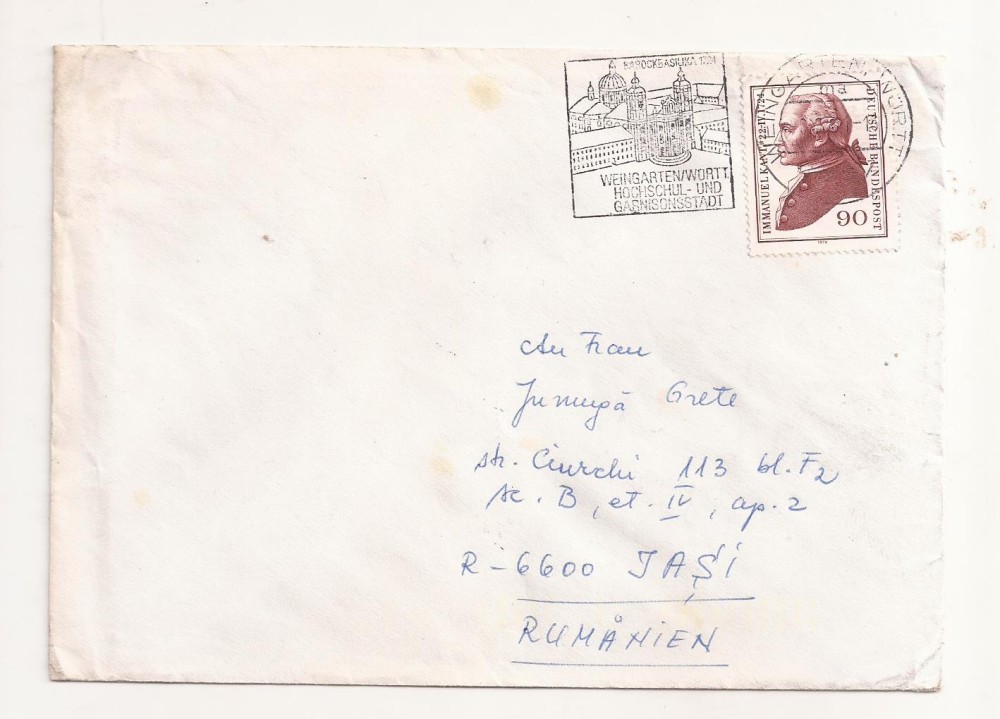 BAROCKBASILIKA 1724
WEINGARTEN/WÜRTT.
HOCHSCHUL- UND
GARNISONSSTADT
WEINGARTEN, WÜRTT
ma
IMMANUEL KANT * 22·IV·1724
DEUTSCHE BUNDESPOST
90
1974
An Frau
Jumugă Grete
str. Ciurchi 113 bl. F2
sc. B, et. IV, ap. 2
R-6600 IAŞI
RUMÄNIEN